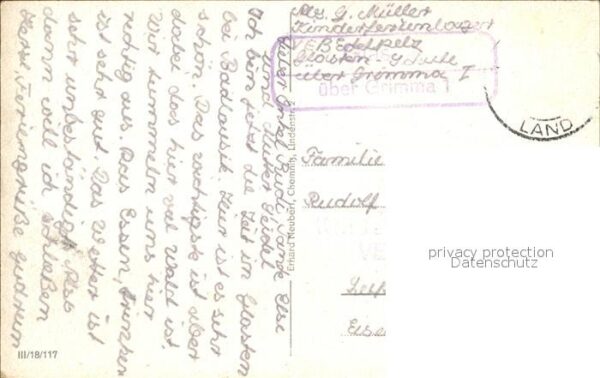 Abs. G. Müller
Kinderferienlager
VEB Edelpelz
Glasten Schule
über Grimma I
über Grimma 1
LAND
Familie
Rudolf
privacy protection
Datenschutz
Erhard Neubert, Chemnitz, Lindenstr.
III/18/117
Lieber Onkel Rudi, Tante Else
und Guter
Ich bin jetzt die Zeit in Glasten
bei Badlausik. Hier ist es sehr
schön. Das wichtigste ist aber
dabei das hier viel Wald ist.
Wir tummeln uns hier
richtig aus. Das Essen, trinken
ist sehr gut. Das Wetter ist
sehr unbeständig.
dann will ich schließen
Herzl. Feriengrüße Gudrun